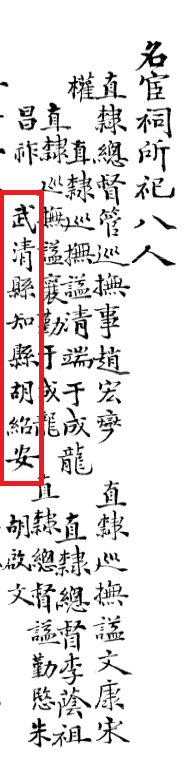 名宦祠所祀八人
直隸總督管巡撫事趙宏燮 直隸巡撫謚文康宋
權 直隸巡撫謚清端于成龍 直隸總督李蔭祖
直隸巡撫謚襄勤于成龍 直隸總督謚勤愍朱
昌祚 武清縣知縣胡紹安 胡啟文